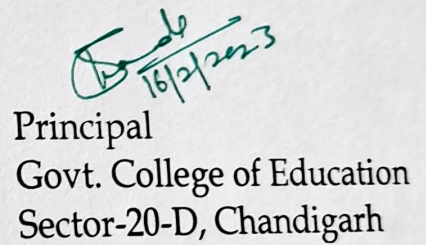 16/2/2023
Principal
Govt. College of Education
Sector-20-D, Chandigarh